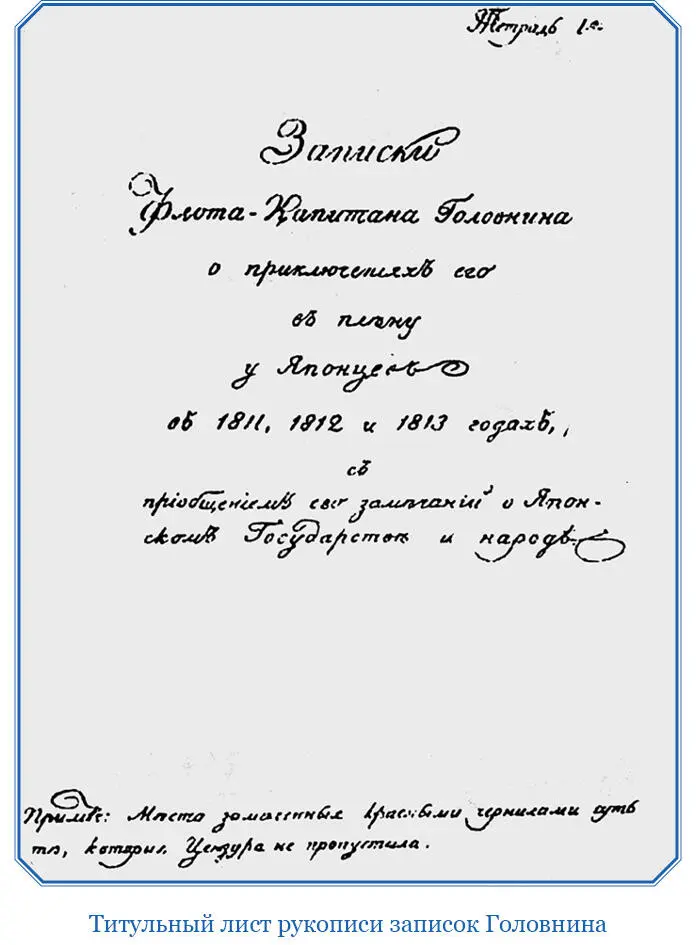 Тетрадь 1я.
Записки
Флота-Капитана Головнина
о приключенiяхъ его
въ плѣну
у Японцевъ
въ 1811, 1812 и 1813 годахъ,
съ
прiобщенiемъ его замѣчанiй о Япон-
скомъ Государствѣ и народѣ.
Примѣч: Мѣста замаченныя красными чернилами суть
тѣ, которыя Цензура не пропустила.
Титульный лист рукописи записок Головнина